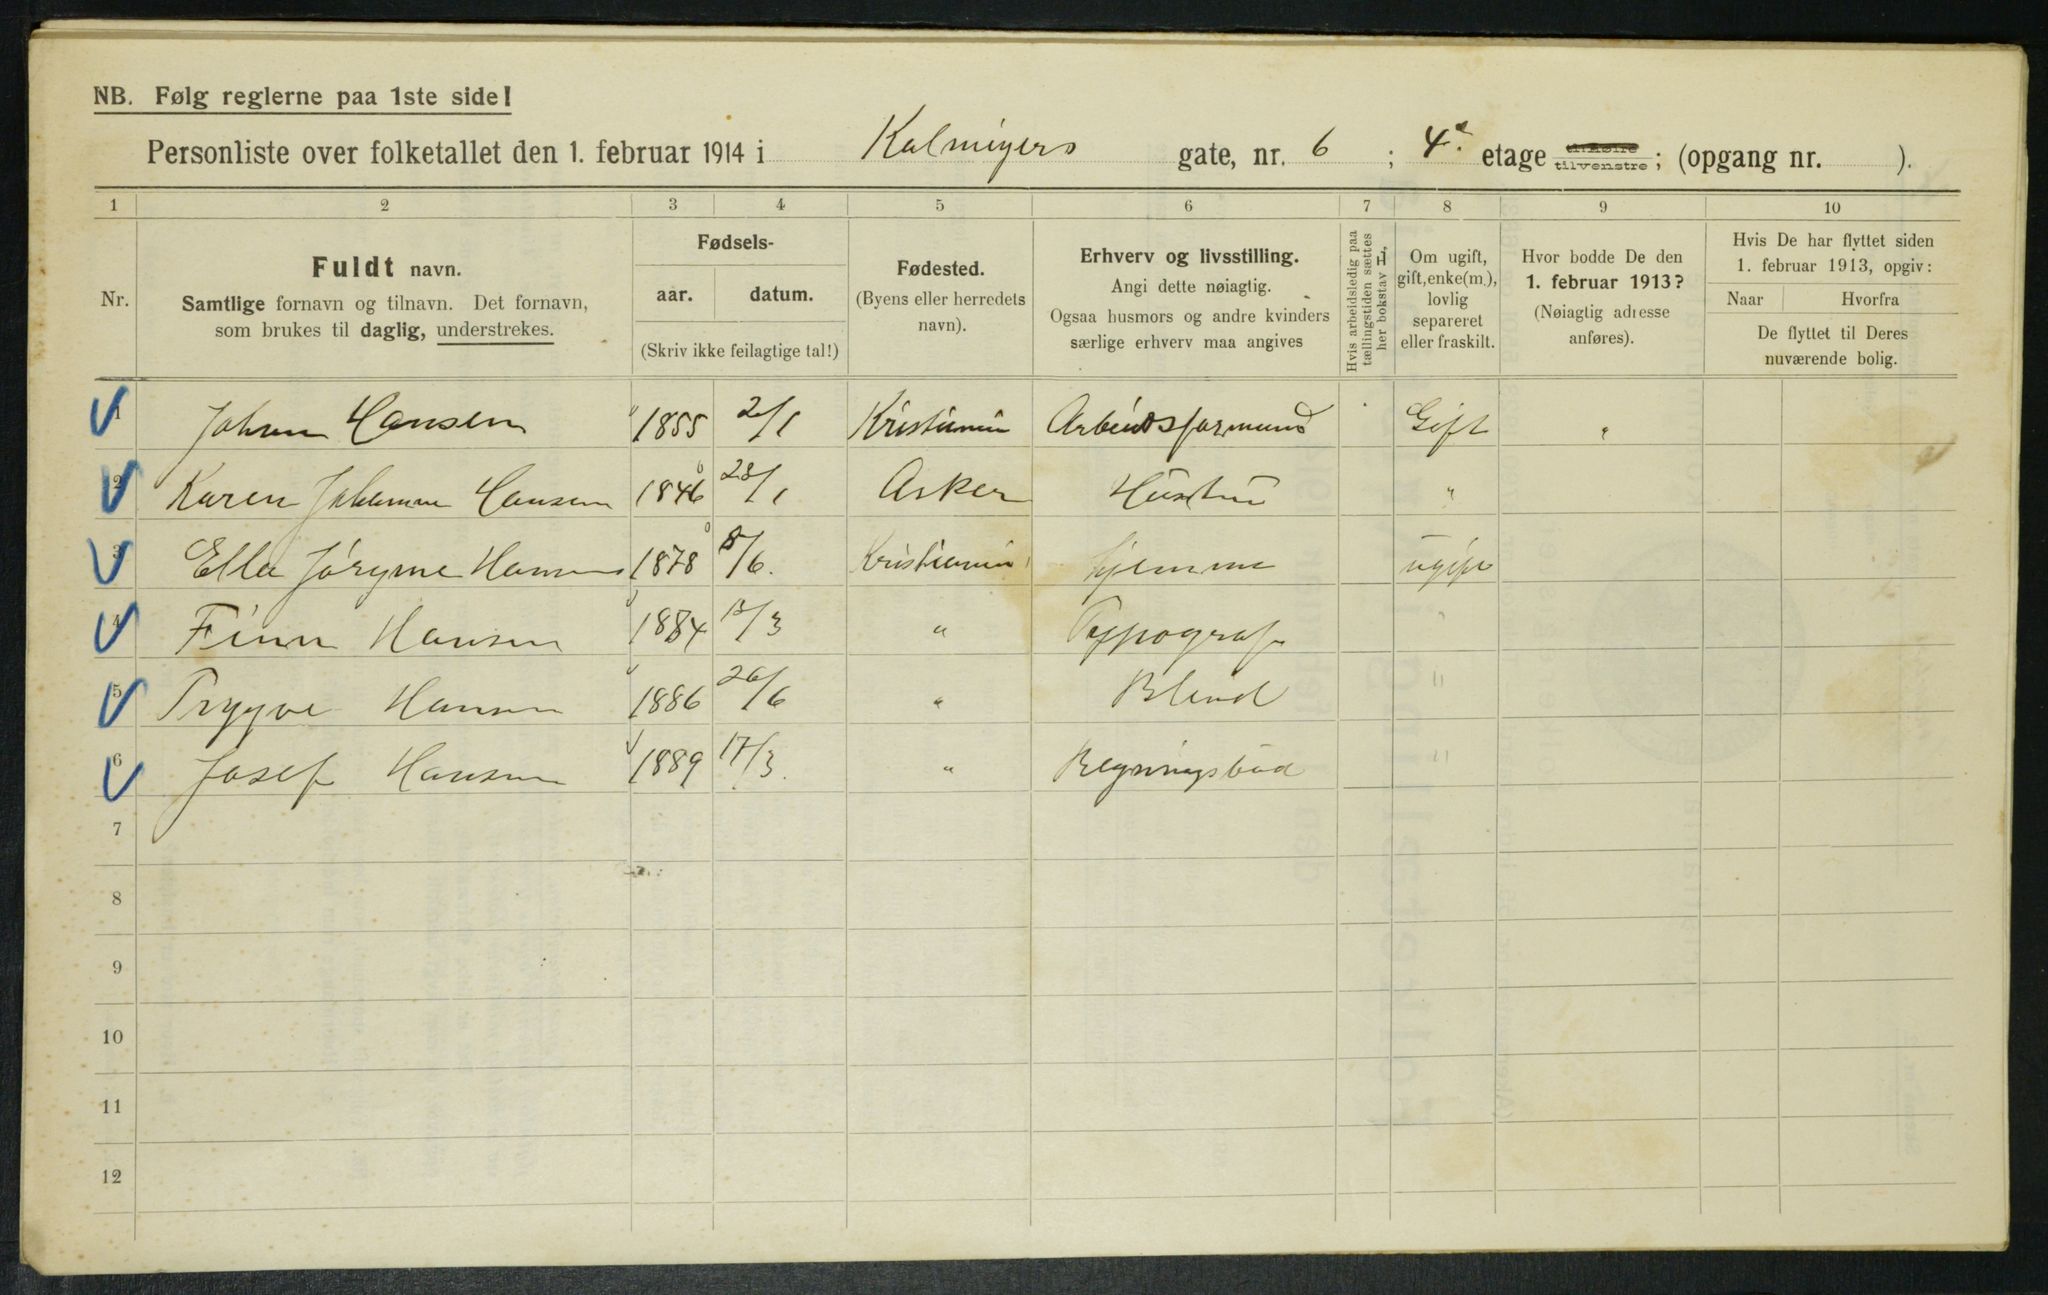 NB. Følg reglerne paa 1ste side!
Personliste over folketallet den 1. februar 1914 i Kalmeyers gate, nr. 6 ; 4e. etage tilhøire tilvenstre; (opgang nr. ).
1 2 3 4 5 6 7 8 9 10
Nr.
Fuldt navn.
Samtlige fornavn og tilnavn. Det fornavn,
som brukes til daglig, understrekes.
Fødsels-
aar. datum.
(Skriv ikke feilagtige tal!)
Fødested.
(Byens eller herredets
navn).
Erhverv og livsstilling.
Angi dette nøiagtig.
Ogsaa husmors og andre kvinders
særlige erhverv maa angives
Hvis arbeidsledig paa
tællingstiden sættes
her bokstav L,
Om ugift,
gift, enke(m.),
lovlig
separeret
eller fraskilt.
Hvor bodde De den
1. februar 1913?
(Nøiagtig adresse
anføres).
Hvis De har flyttet siden
1. februar 1913, opgiv:
Naar Hvorfra
De flyttet til Deres
nuværende bolig.
1 Johan Hansen 1855 2/1 Kristiania Arbeidsformand Gift "
2 Karen Johanne Hansen 1846 28/1 Asker Hustru "
3 Ella Jörgine Hansen 1878 8/6. Kristiania hjemme ugift
4 Finn Hansen 1884 /3 " Typograf "
5 Trygve Hansen 1886 26/6 " Blind "
6 Josef Hansen 1889 17/3. " Regningsbud "
7
8
9
10
11
12